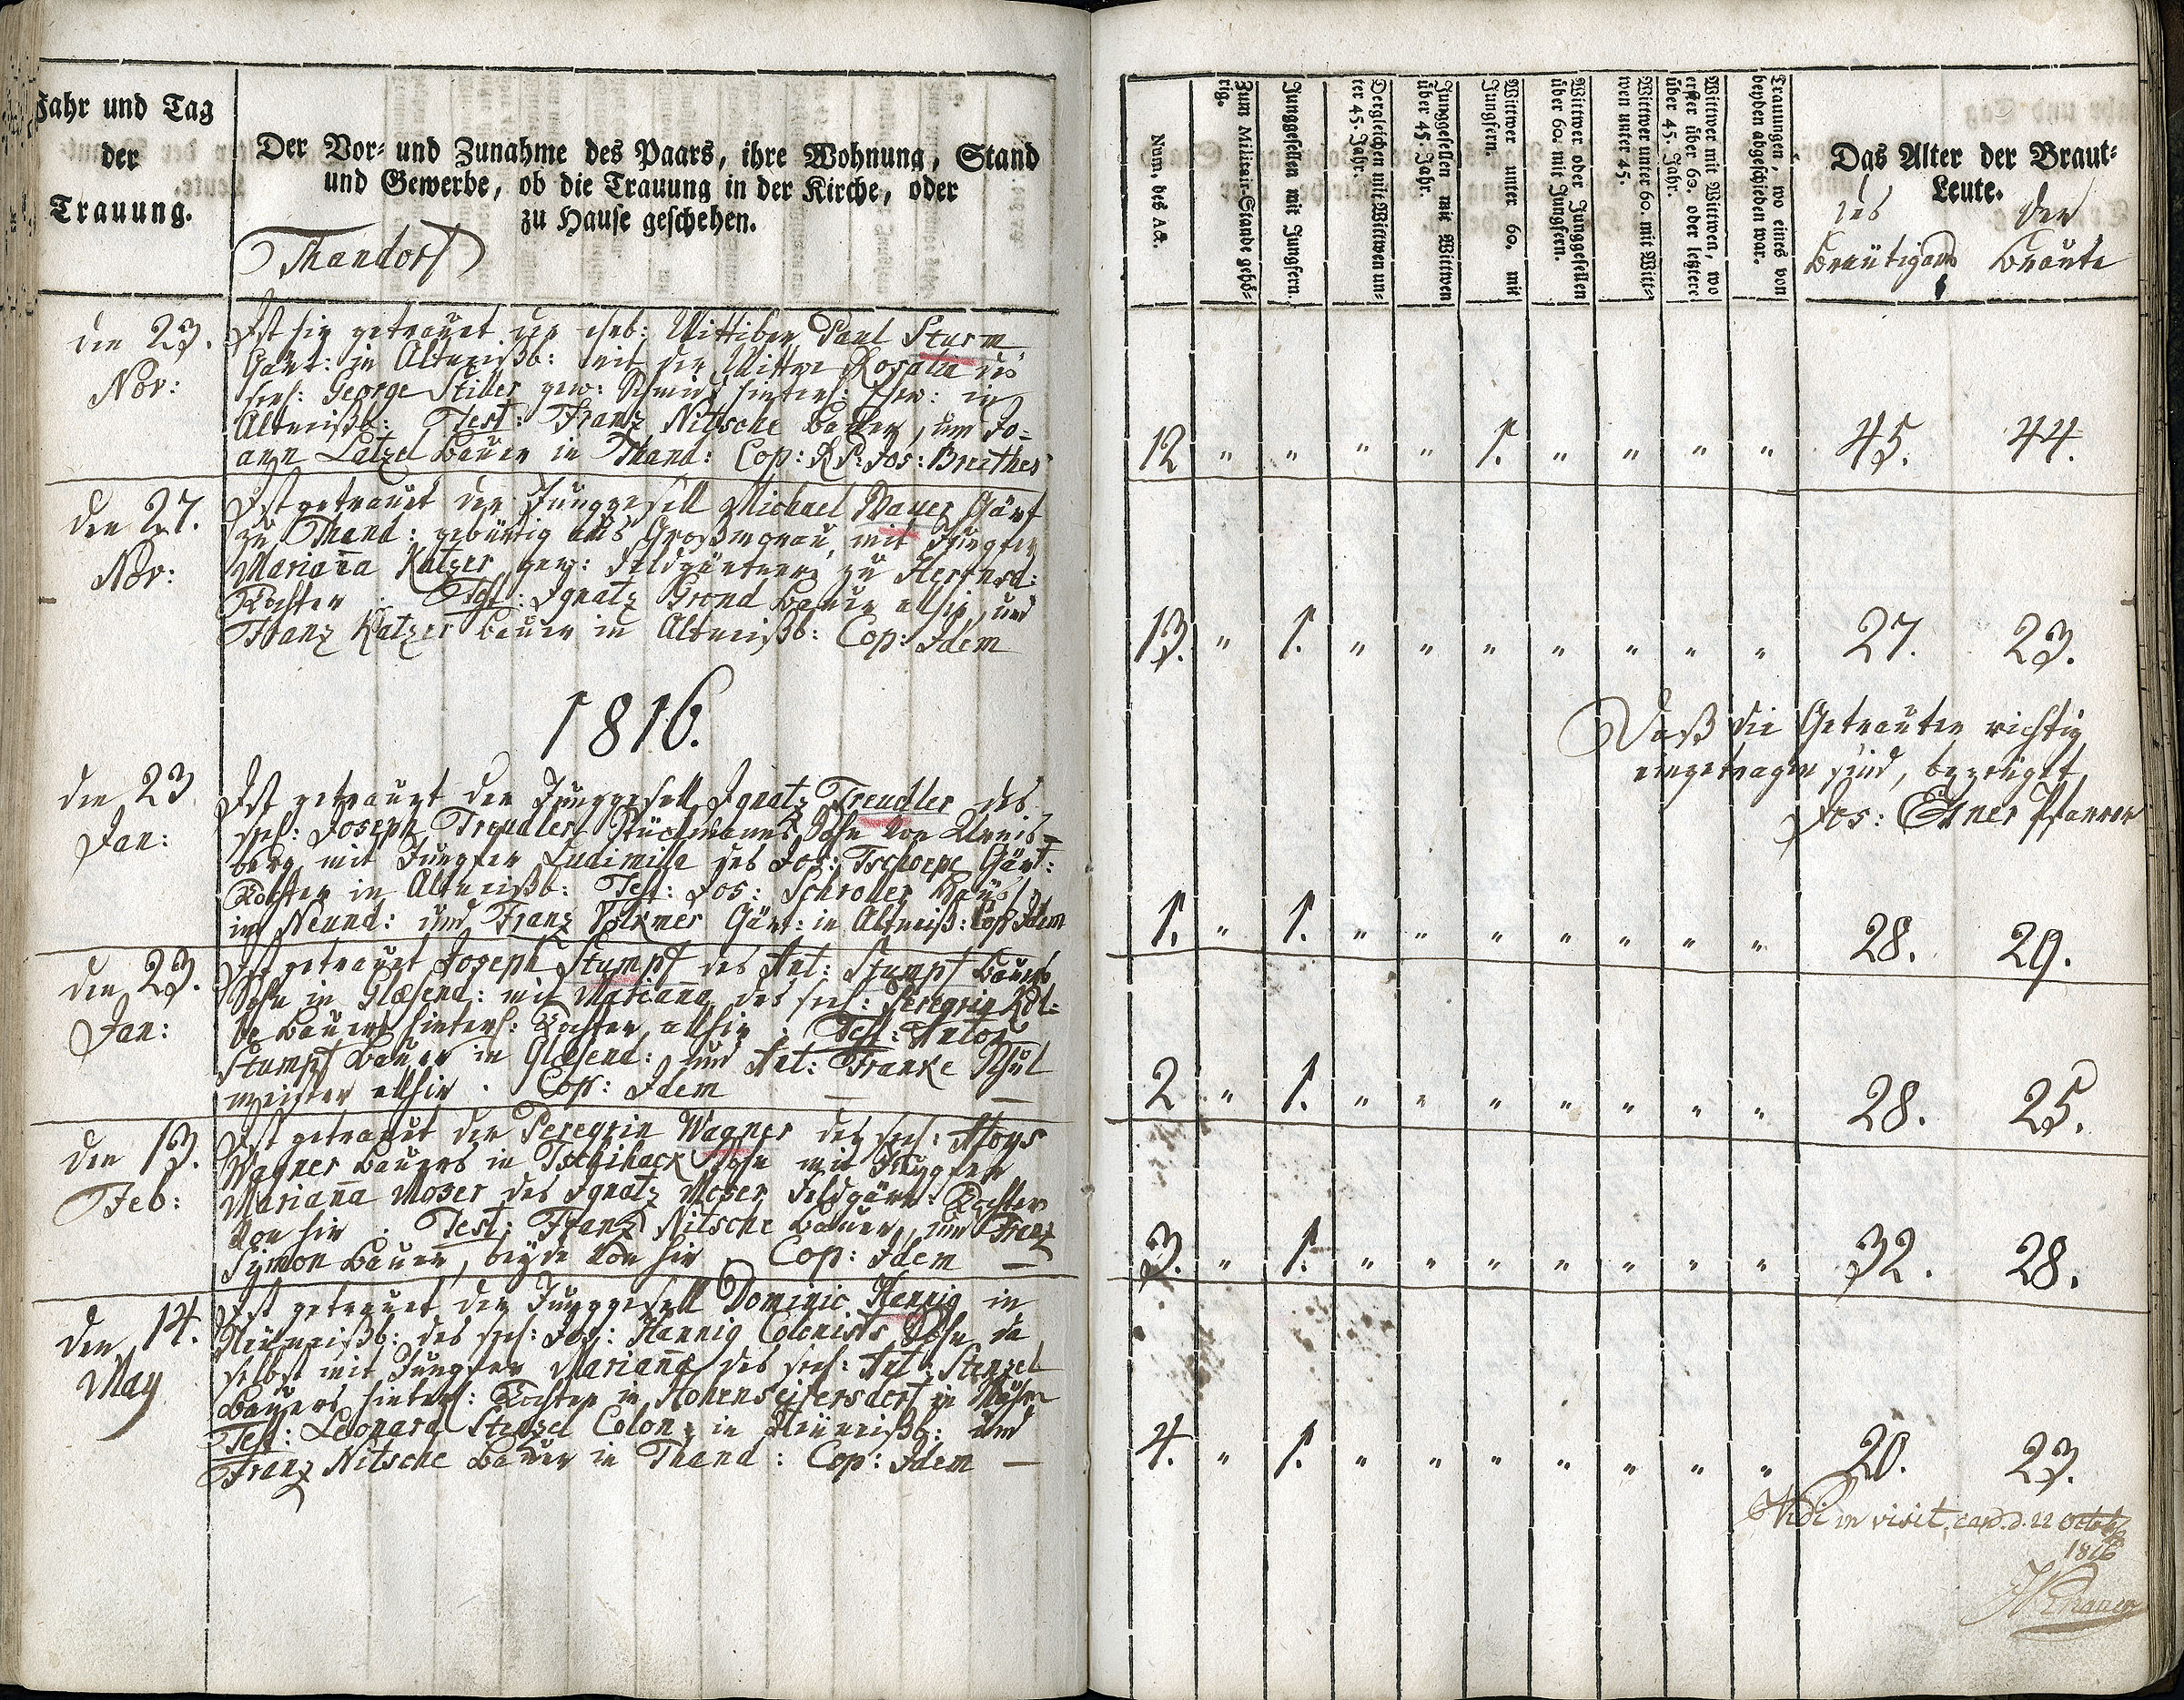 Jahr und Tag
der
Trauung.
Der Vor- und Zunahme des Paars, ihre Wohnung, Stand
und Gewerbe, ob die Trauung in der Kirche, oder
zu Hause geschehen.
Thandorf
Num. des Act.
Zum Militair-Stande gehö-
rig.
Junggesellen mit Jungfern.
Dergleichen mit Wittwen un-
ter 45. Jahr.
Junggesellen mit Wittwen
über 45. Jahr.
Wittwer unter 60. mit
Jungfern.
Wittwer oder Junggesellen
über 60. mit Jungfern.
Wittwer unter 60. mit Witt-
wen unter 45.
Wittwer mit Wittwen, wo
erster über 60. oder letztere
über 45. Jahr.
Trauungen, wo eines von
beyden abgeschieden war.
Das Alter der Braut-
Leute.
des der
Bräutigams Braute
den 23.
Nov:
Ist hir getrauet der ehrb: Wittiber Paul Sturm
Gärt: in Altneißb: mit der Wittwe Rosalia des
seel: George Stiller gew: Schmids hinterl: Ehew: in
Altneißb: Test: Franz Nitsche Bauer, und Jo=
ann Latzel Bauer in Thand: Cop: R P: Jos: Breither
12 " " " " 1. " " " " 45. 44.
den 27.
Nov:
Ist getrauet der Junggesell Michael Wauer Gärt
zu Thand: gebürtig aus mit Jungfer
Mariana Katzer gew: Feldgärtners zu
Tochter. Test: Ignatz Brond Bauer alhir, und
Franz Katzer Bauer in Altneißb: Cop: Idem
13. " 1. " " " " " " " 27. 23.
1816.
Daß die Getrauten richtig
eingetragen sind, bezeuget
Jos: Pfarrer
den 23.
Jan:
Ist getrauet der Junggesell Ignatz Treudler des
seel: Joseph Treudler Stückmanns Sohn von
berg mit Jungfer Ludimilla des Jos: Tschoepe Gärt:
Tochter in Altneißb: Test: Jos: Schroller
in Neund: und Franz Volkmer Gärt: in Altneiß: Cop: Idem
1. " 1. " " " " " " " 28. 29.
den 23.
Jan:
Ist getrauet Joseph Stumpf des Ant: Stumpf Bauers
Sohn in Glæsend: mit Mariana des seel: Peregrin Kol=
be Bauers hinterl: Tochter allhir. Test: Anton
Stumpf Bauer in Glæsend: und Ant: Franke Schul
meister allhir. Cop: Idem —
2 " 1. " " " " " " " 28. 25.
den 13.
Feb:
Ist getrauet der Peregrin Wagner des seel: Aloys
Wagner Bauers in Tschihack Sohn mit Jungfer
Mariana Moser des Ignatz Moser Feldgärt: Tochter
von hir. Test: Franz Nitsche Bauer, und Franz
Symon Bauer, beyde von hir Cop: Idem —
3. " 1. " " " " " " " 32. 28.
den 14.
May
Ist getrauet der Junggesell Dominic Hannig in
Neuneißb: des seel: Jos: Hannig Colonists Sohn da
selbst mit Jungfer Mariana des seel: Ant: Stenzel
Bauers hinterl: Tochter in Hohenseifersdorf in Mähr
Test: Leonard Stenzel Colon: in Neuneißb: und
Franz Nitsche Bauer in Thand: Cop: Idem —
4. " 1. " " " " " " " 20. 23.
Vidi in visit. can. d. 22 Octob
1816